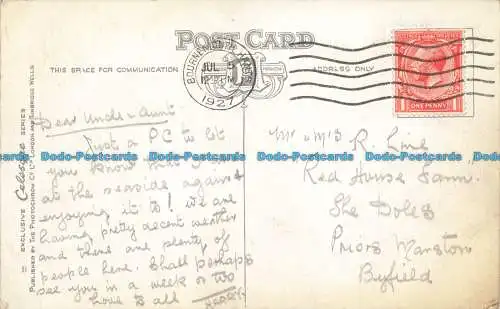 POST CARD
THIS SPACE FOR COMMUNICATION
ADDRESS ONLY
BOURNEMOUTH
JUL
1927
POSTAGE
ONE PENNY
Dear Uncle & Aunt
Just a PC to let
you know that I
at the seaside again &
enjoying it to! We are
having pretty decent weather
and there are plenty of
people here. Shall perhaps
see you in a week or two
Love to all HARRY.
Mr & Mrs R. Line
Red House Farm.
The Doles
Priors Marston
Byfield
EXCLUSIVE Celesque SERIES
PUBLISHED BY THE PHOTOCHROM CO. LTD. LONDON AND TUNBRIDGE WELLS
Dodo-Postcards Dodo-Postcards Dodo-Postcards Dodo-Postcards
Dodo-Postcards Dodo-Postcards Dodo-Postcards
Dodo-Postcards Dodo-Postcards Dodo-Postcards Dodo-Postcards